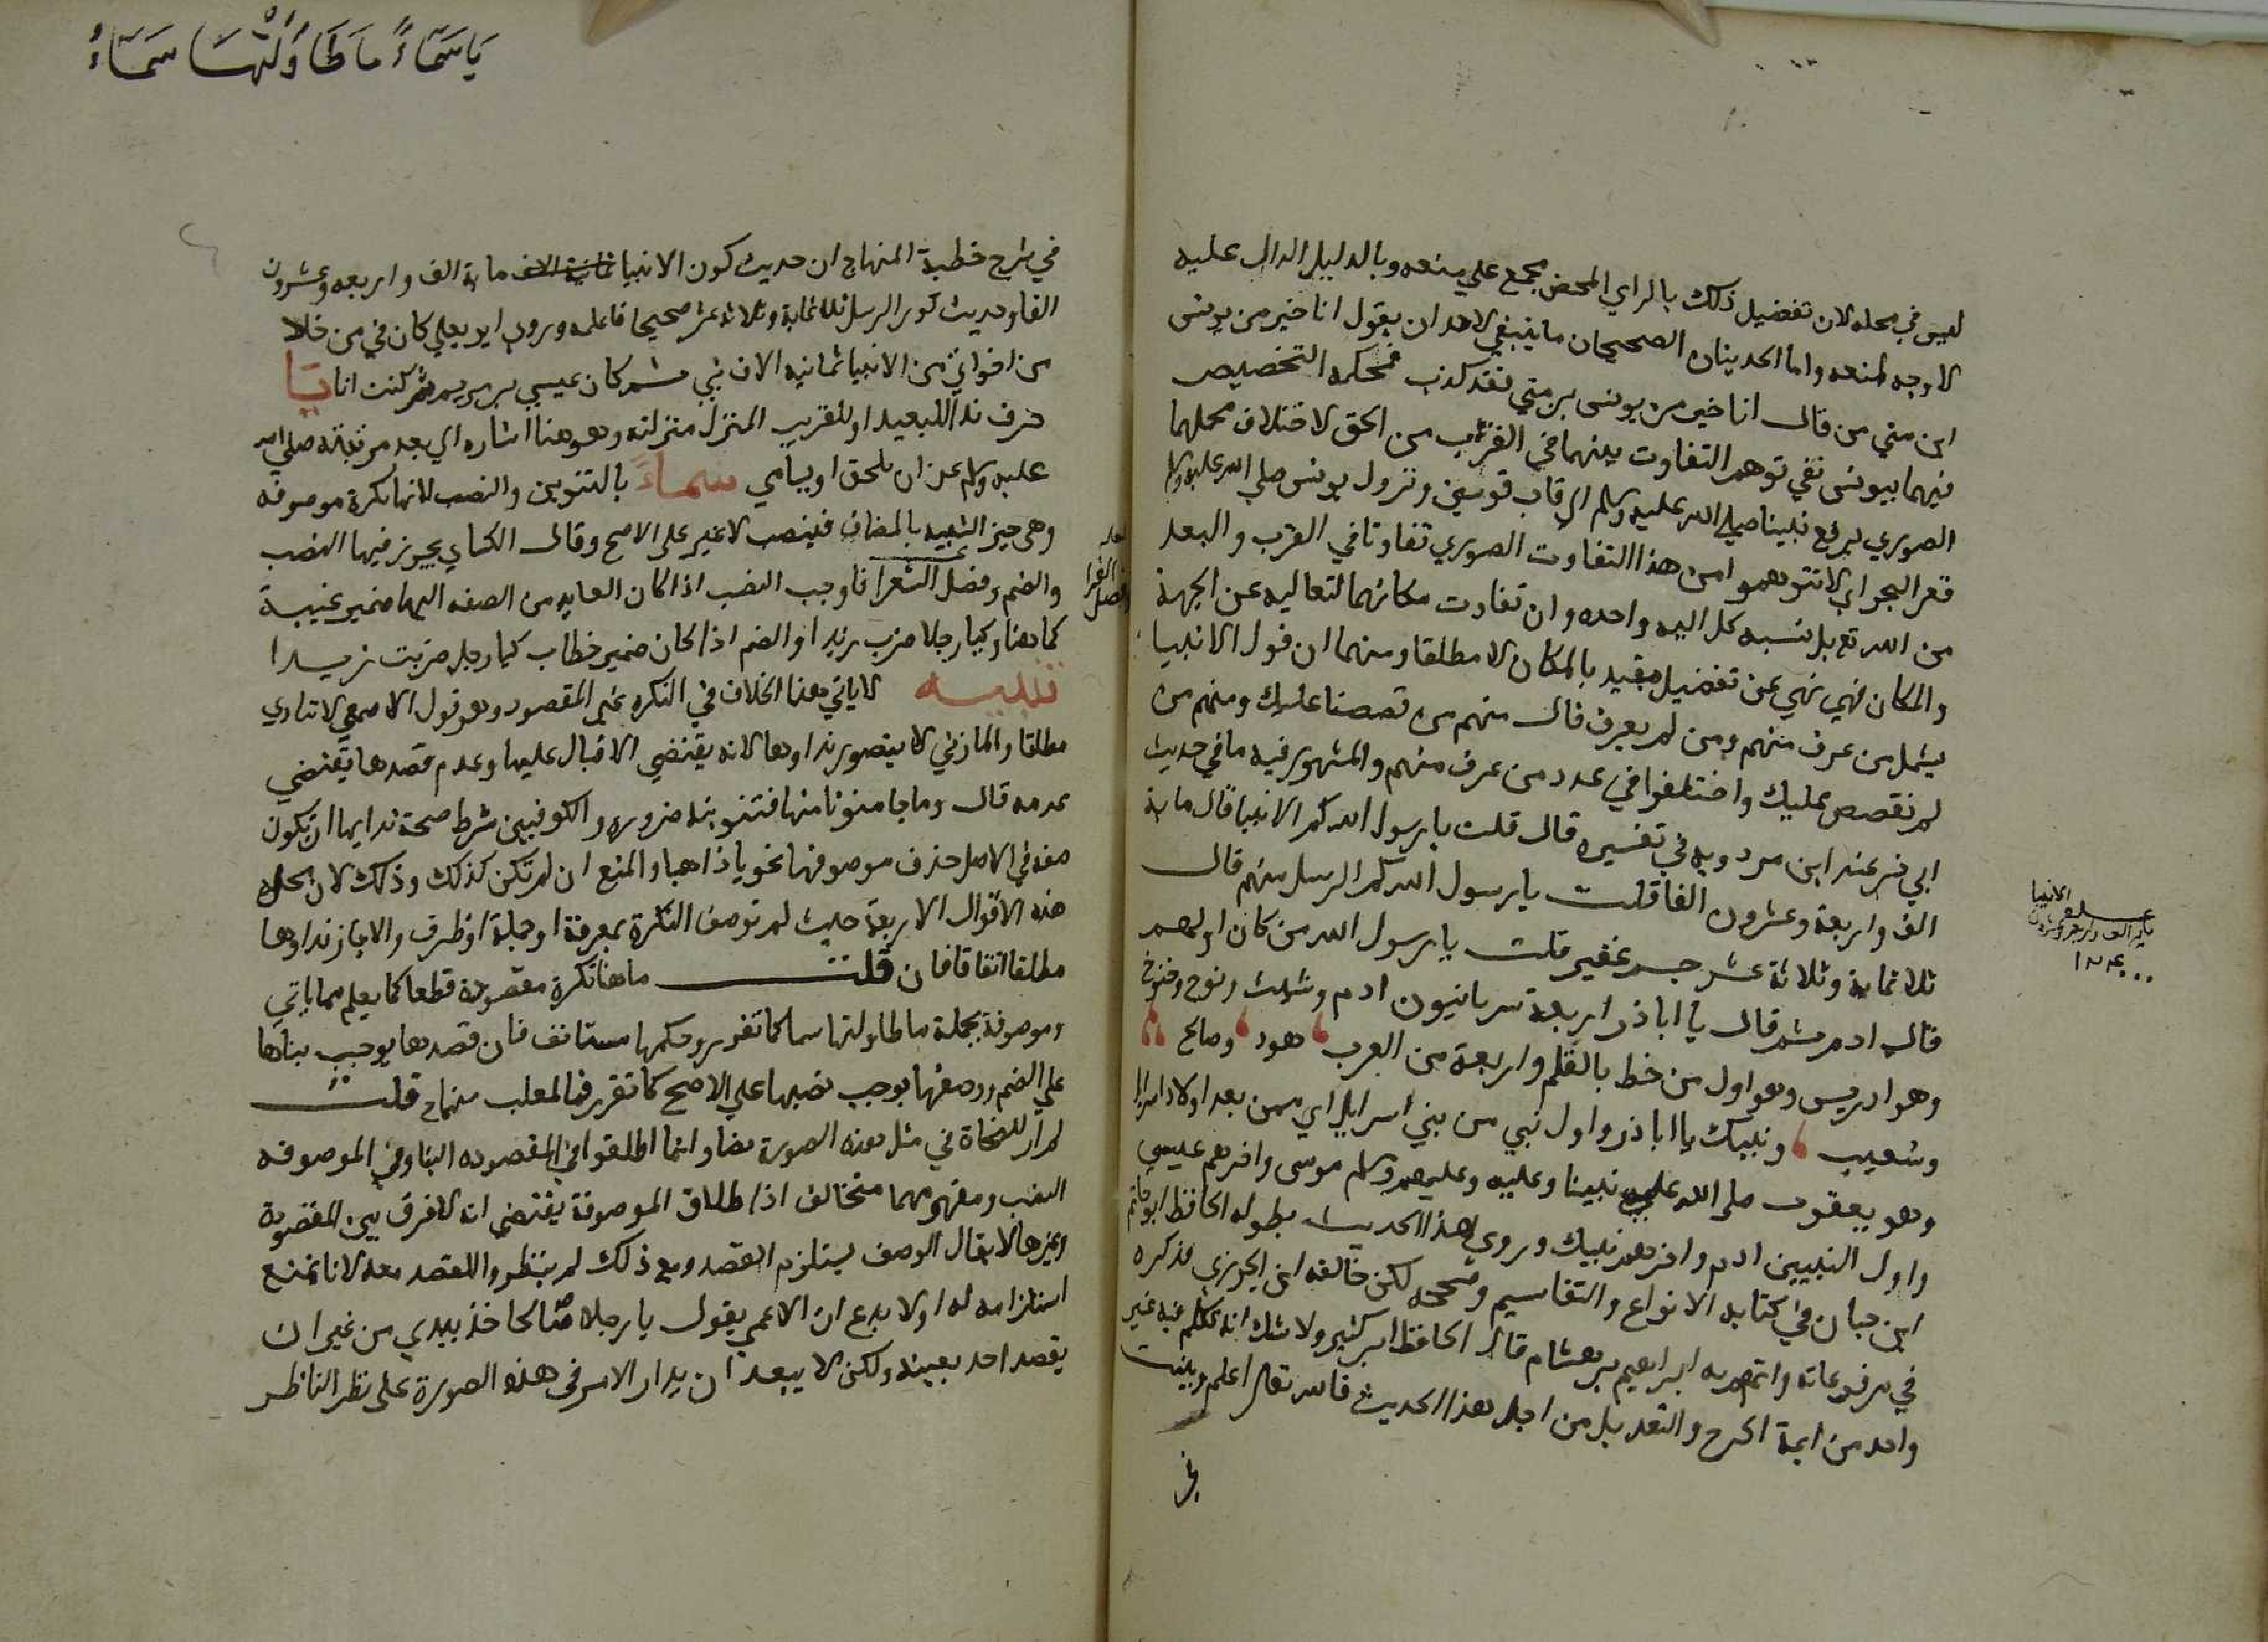 ليس في محله لان تفضيل ذلك بالراي المحض مجمع علي منعه وبالدليل الدال عليه
لا وجه لمنعه واما الحديثان الصحيحان ما ينبغي لاحد ان يقول انا خير من يونس
ابن متي من قال انا خير من يونس بن متي فقد كذب فحكمه التخصيص
فيهما بيونس نفي توهم التفاوت بينهما في القرب من الحق لاختلاف محلهما
الصوري برفع نبينا صلي الله عليه وسلم الي قاب قوسين ونزول يونس صلي الله عليه وسلم
قعر البحر اي لا تتوهموا من هذا التفاوت الصوري تفاوتا في القرب والبعد
من الله تع بل نسبه كل اليه واحده وان تفاوت مكانهما لتعاليه عن الجهة
والمكان فهي نهي عن تفضيل مقيد بالمكان لا مطلقا ومنهما ان قول الانبيا
يشمل من عرف منهم ومن لم يعرف قال منهم من قصصنا عليك ومنهم من
لم نقصص عليك واختلفوا في عدد من عرف منهم والمشهور فيه ما في حديث
ابي ذر عند ابن مردويه في تفسيره قال قلت يا رسول الله كم الانبيا قال ماية
الف واربعة وعشرون الفا قلت يا رسول الله كم الرسل منهم قال
ثلاثماية وثلاثة عشر جم غفير قلت يا رسول الله من كان اولهم
قال ادم ثم قال يا اباذر اربعة سريانيون ادم وشيث ونوح وخنوخ
وهو ادريس وهو اول من خط بالقلم واربعة من العرب هود وصالح
وشعيب ونبيك يا اباذر واول نبي من بني اسرايل اي ممن بعد اولاد اسرايل
وهو يعقوب صلي الله علي نبينا وعليه وعليهم وسلم موسى واخرهم عيسي
واول النبيين ادم واخرهم نبيك وروي هذا الحديث بطوله الحافظ ابو حاتم
ابن حبان في كتابه الانواع والتقاسيم وصححه لكن خالفه ابن الجوزي فذكره
في مرفوعاته واتهم به ابراهيم بن هشام قال الحافظ ابن كثير ولا شك انه تكلم فيه غير
واحد من ايمة الجرح والتعديل من اجل هذا الحديث فالله تعالى اعلم وبينت
في
الانبيا
ماية الف واربعة وعشرون
١٢٤٠٠٠
يَا سَمَاءً مَا طَاوَلَتْهَا سَمَاءُ
في شرح خطبة المنهاج ان حديث كون الانبيا ثمانية الاف ماية الف واربعه وعشرون
الفا وحديث كون الرسل ثلاثماية وثلاثة عشر صحيحا فاعلمه وروي ابو يعلي كان في من خلا
من اخواني من الانبيا ثمانيه الاف نبي ثم كان عيسي بن مريم ثم كنت انا يَا
حرف ندا للبعيد او للقريب المنزل منزلته وهو هنا اشاره اي بعد مرتبته صلي الله
عليه وسلم عن ان يلحق او يسامي سماءً بالتنوين والنصب لانها نكرة موصوفه
وهي حيز الشبيه بالمضاف فينصب لا غير على الاصح وقال الكساي يجوز فيها النصب
والضم وفصل الشعرا فاوجب النصب اذا كان العايد من الصفه اليها ضمير غيبة
كما هنا وكيا رجلا ضرب زيدا والضم اذا كان ضمير خطاب كيا رجل ضربت زيدا
تنبيه لا ياتي هذا الخلاف في النكره غير المقصود وهو قول الاصمعي لا تنادي
مطلقا والمازني لا يتصور نداوها لانه يقتضي الاقبال عليها وعدم قصدها يقتضي
عدمه قال وما جا منونا منها فتنوينه ضروره والكوفيين شرط صحة ندايها ان تكون
صفه في الاصل حذف موصوفها نحو يا ذاهبا والمنع ان لم تكن كذلك وذلك لان محل
هذه الاقوال الاربعة حيث لم توصف النكرة بمعرفة او جملة او ظرف والا جاز نداوها
مطلقا اتفاقا فان قلت ما هنا نكرة مقصودة قطعا كما يعلم مما ياتي
وموصوفة بجملة ما طاولتها سما كما تقرر وحكمها مستانف فان قصدها يوجب بناها
علي الضم ووصفها يوجب نصبها علي الاصح كما تقرر فالمغلب منهما قلت
لم ار للنحاة في مثل هذه الصورة نصا وانما اطلقوا في المقصوده البنا وفي الموصوفه
النصب ومفهومهما متخالف اذ اطلاق الموصوفة يقتضي انه لا فرق بين المقصودة
وغيرها لا يقال الوصف يستلزم القصد ومع ذلك لم ينظروا للقصد معه لانا نمنع
استلزامه له اولا بدع ان الاعمي يقول يا رجلا صالحا خذ بيدي من غير ان
يقصد احد بعينه ولكن لا يبعد ان يدار الامر في هذه الصورة على نظر الناظر